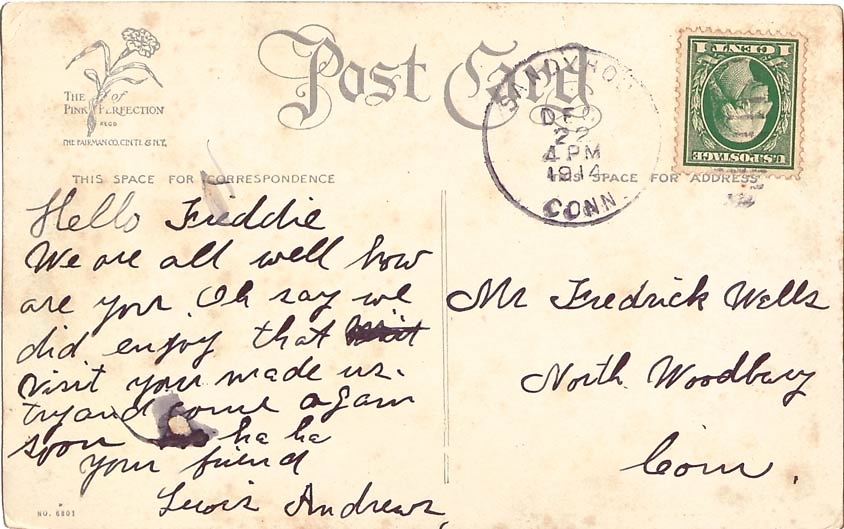 Post Card
THE of
PINK PERFECTION
REGD
THE FAIRMAN CO. CIN'TI. & N.Y.
SANDY HOOK
DEC
22
4 PM
1914
CONN.
1 CENT 1
U.S. POSTAGE
THIS SPACE FOR CORRESPONDENCE
THIS SPACE FOR ADDRESS
Hello Freddie
We are all well how
are you. Oh say we
did enjoy that
visit you made us.
try and come again
soon ha ha
your friend
Lewis Andrews,
Mr Fredrick Wells
North Woodbury
Conn.
NO. 6801